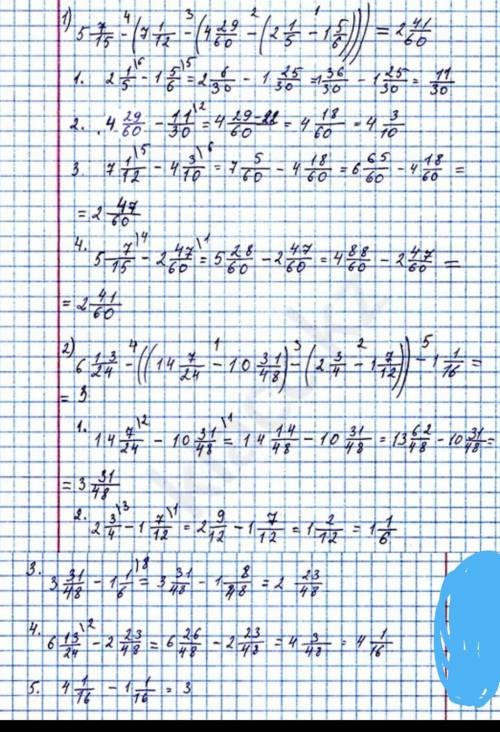 1) 5 7/15 -⁴ (7 1/12 -³ (4 29/60 -² (2 1/5 -¹ 1 5/6))) = 2 41/60
1. 2 1/5\6 - 1 5/6\5 = 2 6/30 - 1 25/30 = 1 36/30 - 1 25/30 = 11/30
2. 4 29/60 - 11/30\2 = 4 29-22/60 = 4 18/60 = 4 3/10
3. 7 1/12\5 - 4 3/10\6 = 7 5/60 - 4 18/60 = 6 65/60 - 4 18/60 =
= 2 47/60
4. 5 7/15\4 - 2 47/60\1 = 5 28/60 - 2 47/60 = 4 88/60 - 2 47/60 =
= 2 41/60
2) 6 13/24 -⁴ ((14 7/24 -¹ 10 31/48) -³ (2 3/4 -² 1 7/12)) -⁵ 1 1/16 =
= 3
1. 14 7/24\2 - 10 31/48\1 = 14 14/48 - 10 31/48 = 13 62/48 - 10 31/48 =
= 3 31/48
2. 2 3/4\3 - 1 7/12\1 = 2 9/12 - 1 7/12 = 1 2/12 = 1 1/6
3. 3 31/48 - 1 1/6\8 = 3 31/48 - 1 8/48 = 2 23/48
4. 6 13/24\2 - 2 23/48 = 6 26/48 - 2 23/48 = 4 3/48 = 4 1/16
5. 4 1/16 - 1 1/16 = 3